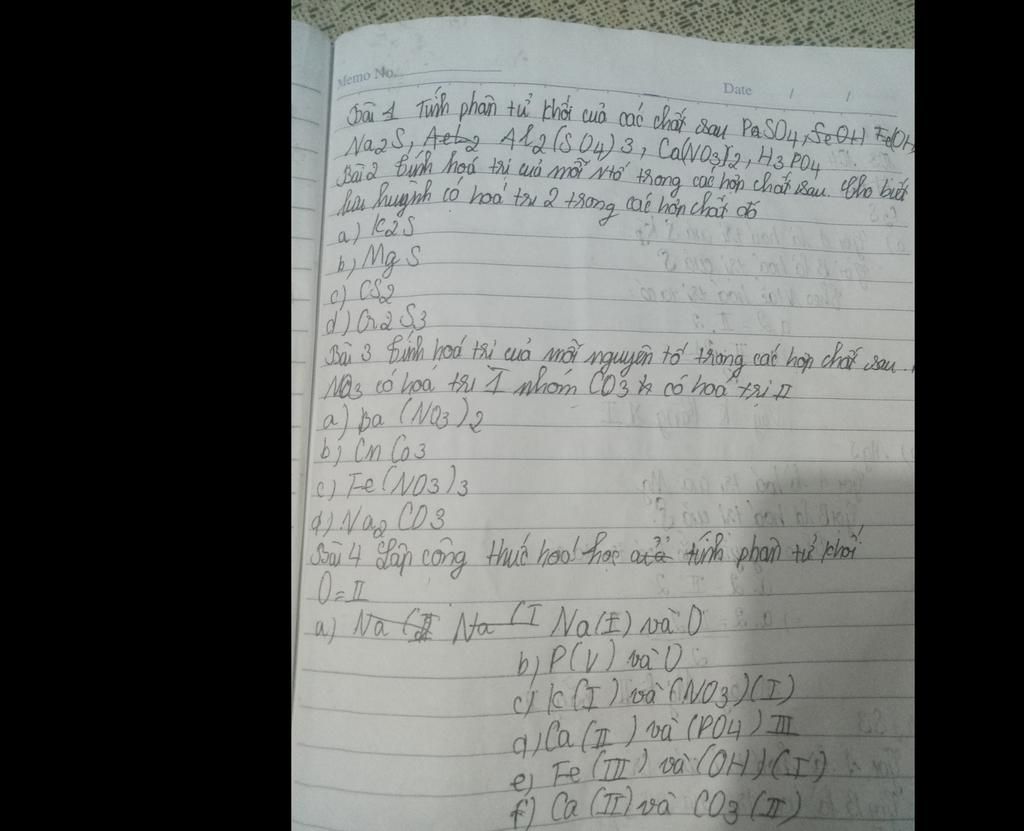 Memo No.
Date / /
Bài 1 Tính phân tử khối cuả các chất sau BaSO4, FeOH Fe(OH)
Na2S, Al2(SO4)3, Ca(NO3)2, H3PO4
Bài 2 tính hoá trị của mỗi ntố trong các hợp chất sau. Cho biết
lưu huỳnh có hoá trị 2 trong các hợp chất đó
a) K2S
b) MgS
c) CS2
d) Cr2S3
Bài 3 tính hoá trị cuả mỗi nguyên tố trong các hợp chất sau.
NO3 có hoá trị I nhóm CO3 có hoá trị II
a) Ba(NO3)2
b) CO3
c) Fe(NO3)3
d) Na2CO3
Bài 4 Lập công thức hoá học tính phân tử khối
O=II
a) Na (II Na (I Na(I) và O
b) P(V) và O
c) K(I) và (NO3)(I)
d) Ca(II) và (PO4)III
e) Fe(III) và (OH)(I)
f) Ca(II) và CO3(II)